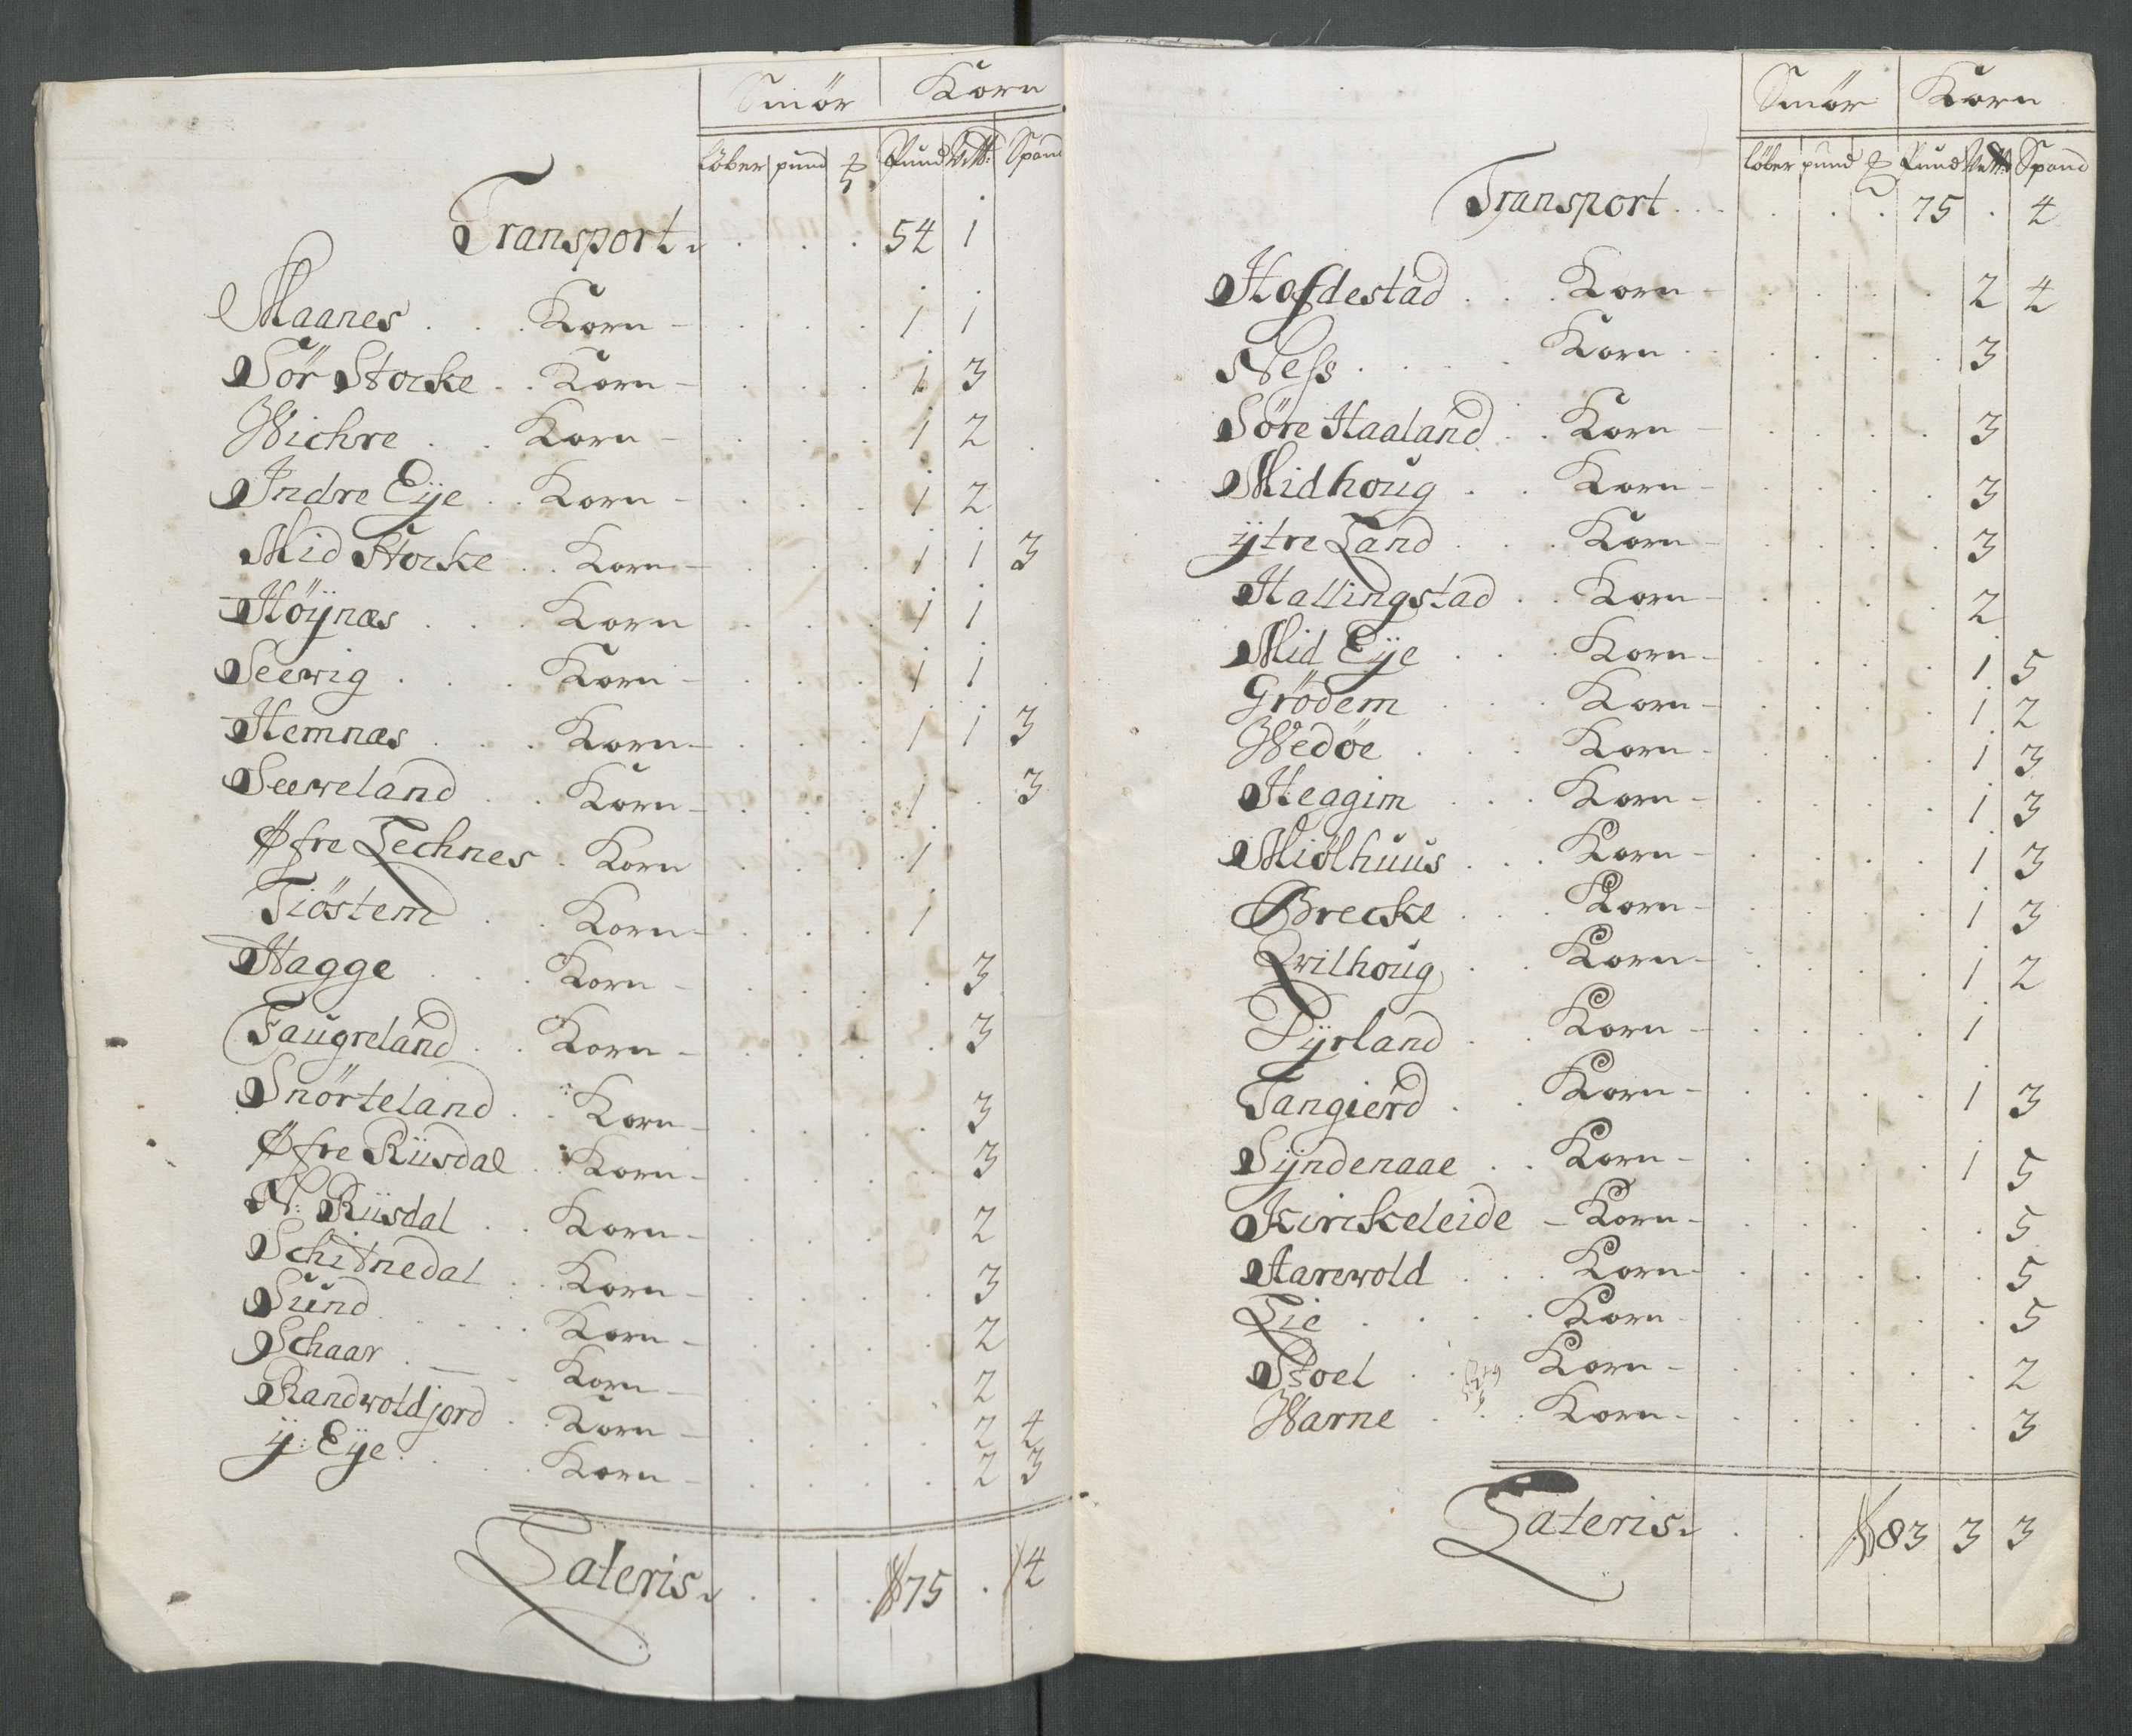 Smör Korn
löber pund ℔ Pund Vett: Spand
Transport. 54 1
Maanes Korn 1 1
Sör Stocke Korn 1 3
Wichre Korn 1 2
Indre Eÿe Korn 1 2
Mid Stocke Korn 1 1 3
Höÿnæs Korn 1 1
Seewig Korn 1 1
Hemnæs Korn 1 1 3
Seeweland Korn 1 . 3
Øfre Lechnes Korn 1
Tiöstem Korn 1
Hagge Korn 3
Faugreland Korn 3
Snörteland Korn 3
Øfre Riisdal Korn 3
N: Riisdal Korn 2
Schitnedal Korn 3
Sund Korn 2
Schaar Korn 2
Randwoldjord Korn 2 4
ÿ: Eÿe Korn 2 3
Lateris. 75 . 4
Smör Korn
löber pund ℔ Pund Vett: Spand
Transport 75 . 4
Hofdestad Korn 2 4
Ness Korn 3
Söre Haaland Korn 3
Midhoug Korn 3
ÿtre Land Korn 3
Hallingstad Korn 2
Mid Eÿe Korn 1 5
Grödem Korn 1 2
Wedöe Korn 1 3
Heagim Korn 1 3
Miölhuus Korn 1 3
Brecke Korn 1 3
Qvilhoug Korn 1 2
Dÿrland Korn 1
Tangierd Korn 1 3
Sÿndenaae Korn 1 5
Kirckeleide Korn 5
Harewold Korn 5
Lie Korn 5
Stoel Korn 2
Warne Korn 3
Lateris. 83 3 3